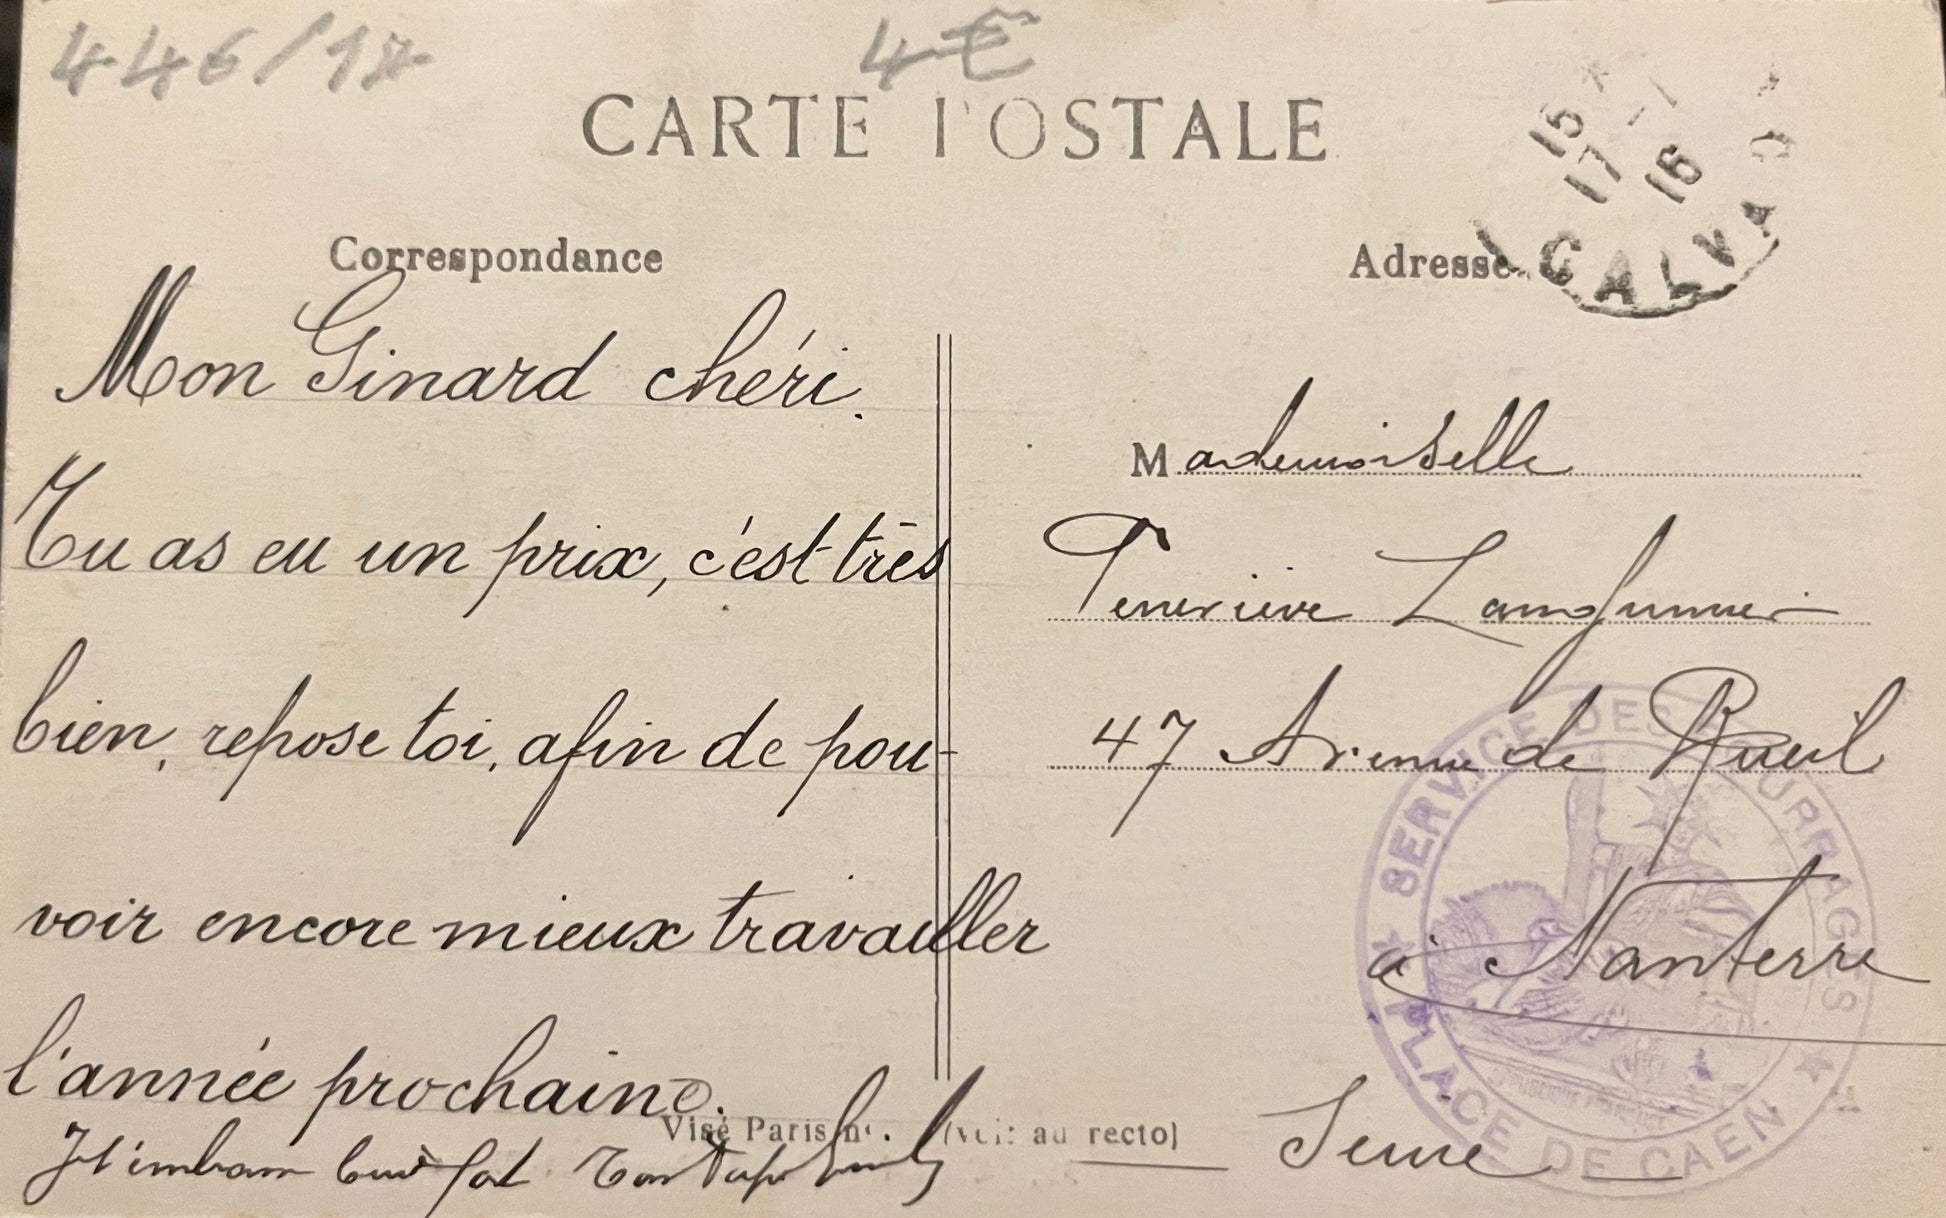 446/12
4€
CARTE POSTALE
15
17 - 1
16
CALVADO
Correspondance
Adresse
Mon Ginard chéri.
Tu as eu un prix, c'est très
bien, repose toi, afin de pou-
voir encore mieux travailler
l'année prochaine.
fort Ton
Visé Paris n°. (voir au recto)
Mademoiselle
Geneviève
47 Avenue de Rueil
à Nanterre
Seine
SERVICE DES FOURRAGES
PLACE DE CAEN